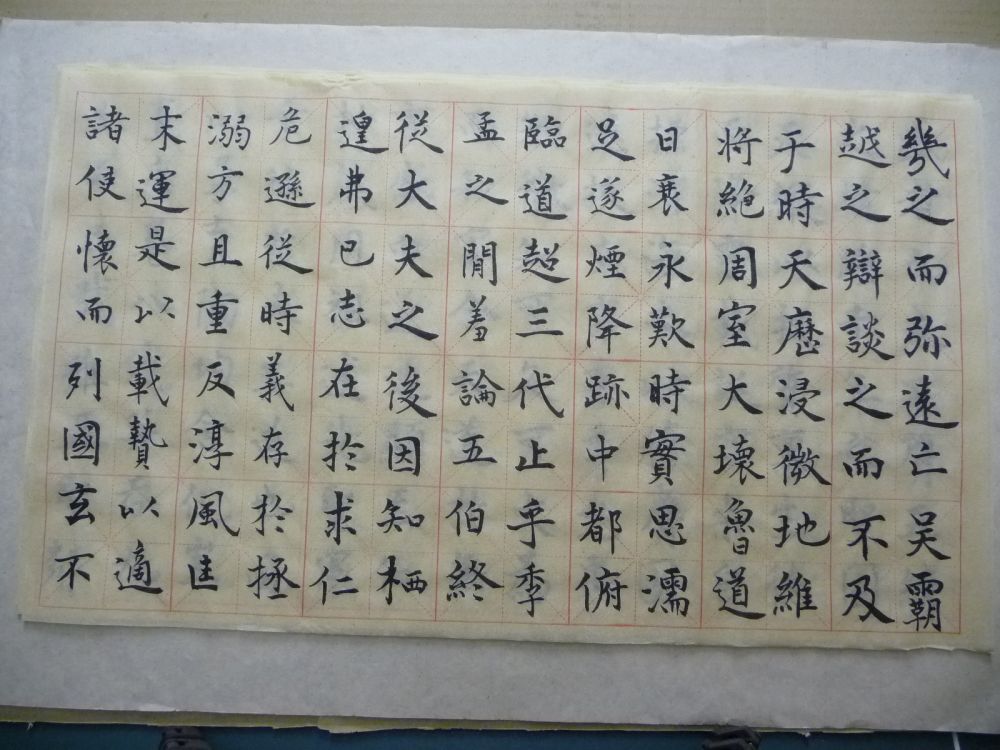 幾之而弥遠亡吴霸
越之辯談之而不及
于時天曆浸微地維
将絶周室大壊魯道
日衰永歎時實思濡
足遂煙降跡中都俯
臨道超三代止乎季
孟之閒羞論五伯終
從大夫之後因知栖
遑弗已志在扵求仁
危遜從時義存扵拯
溺方且重反淳風匡
末運是以載贄以適
諸侯懷而列國玄不